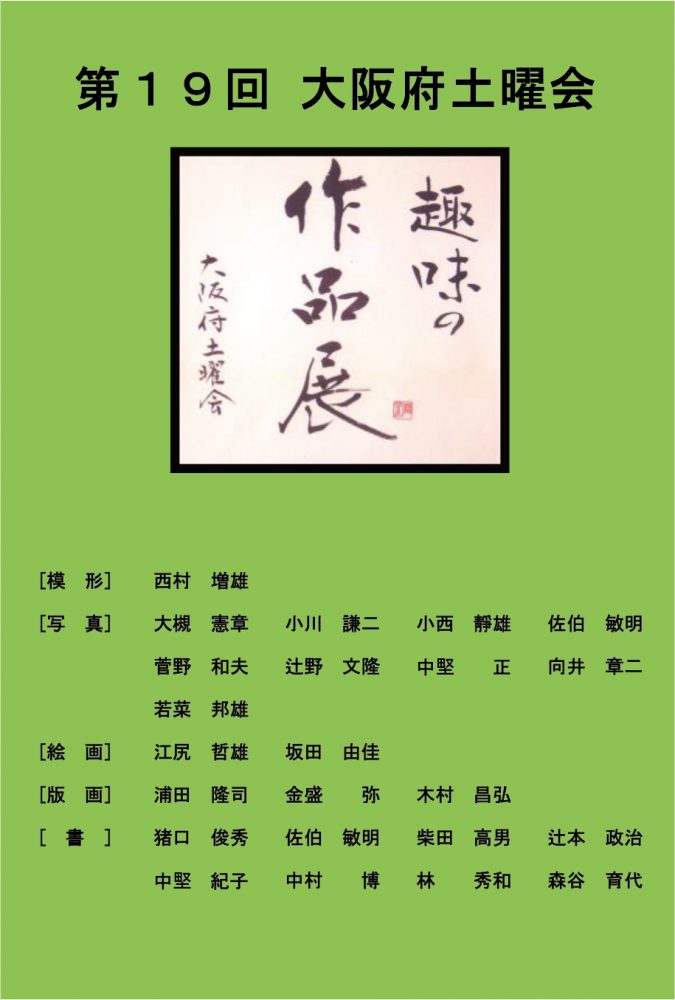 第１９回 大阪府土曜会
趣味の
作品展
大阪府土曜会
［模　形］　西村　増雄
［写　真］　大槻　憲章　小川　謙二　小西　靜雄　佐伯　敏明
菅野　和夫　辻野　文隆　中堅　正　向井　章二
若菜　邦雄
［絵　画］　江尻　哲雄　坂田　由佳
［版　画］　浦田　隆司　金盛　弥　木村　昌弘
［　書　］　猪口　俊秀　佐伯　敏明　柴田　高男　辻本　政治
中堅　紀子　中村　博　林　秀和　森谷　育代